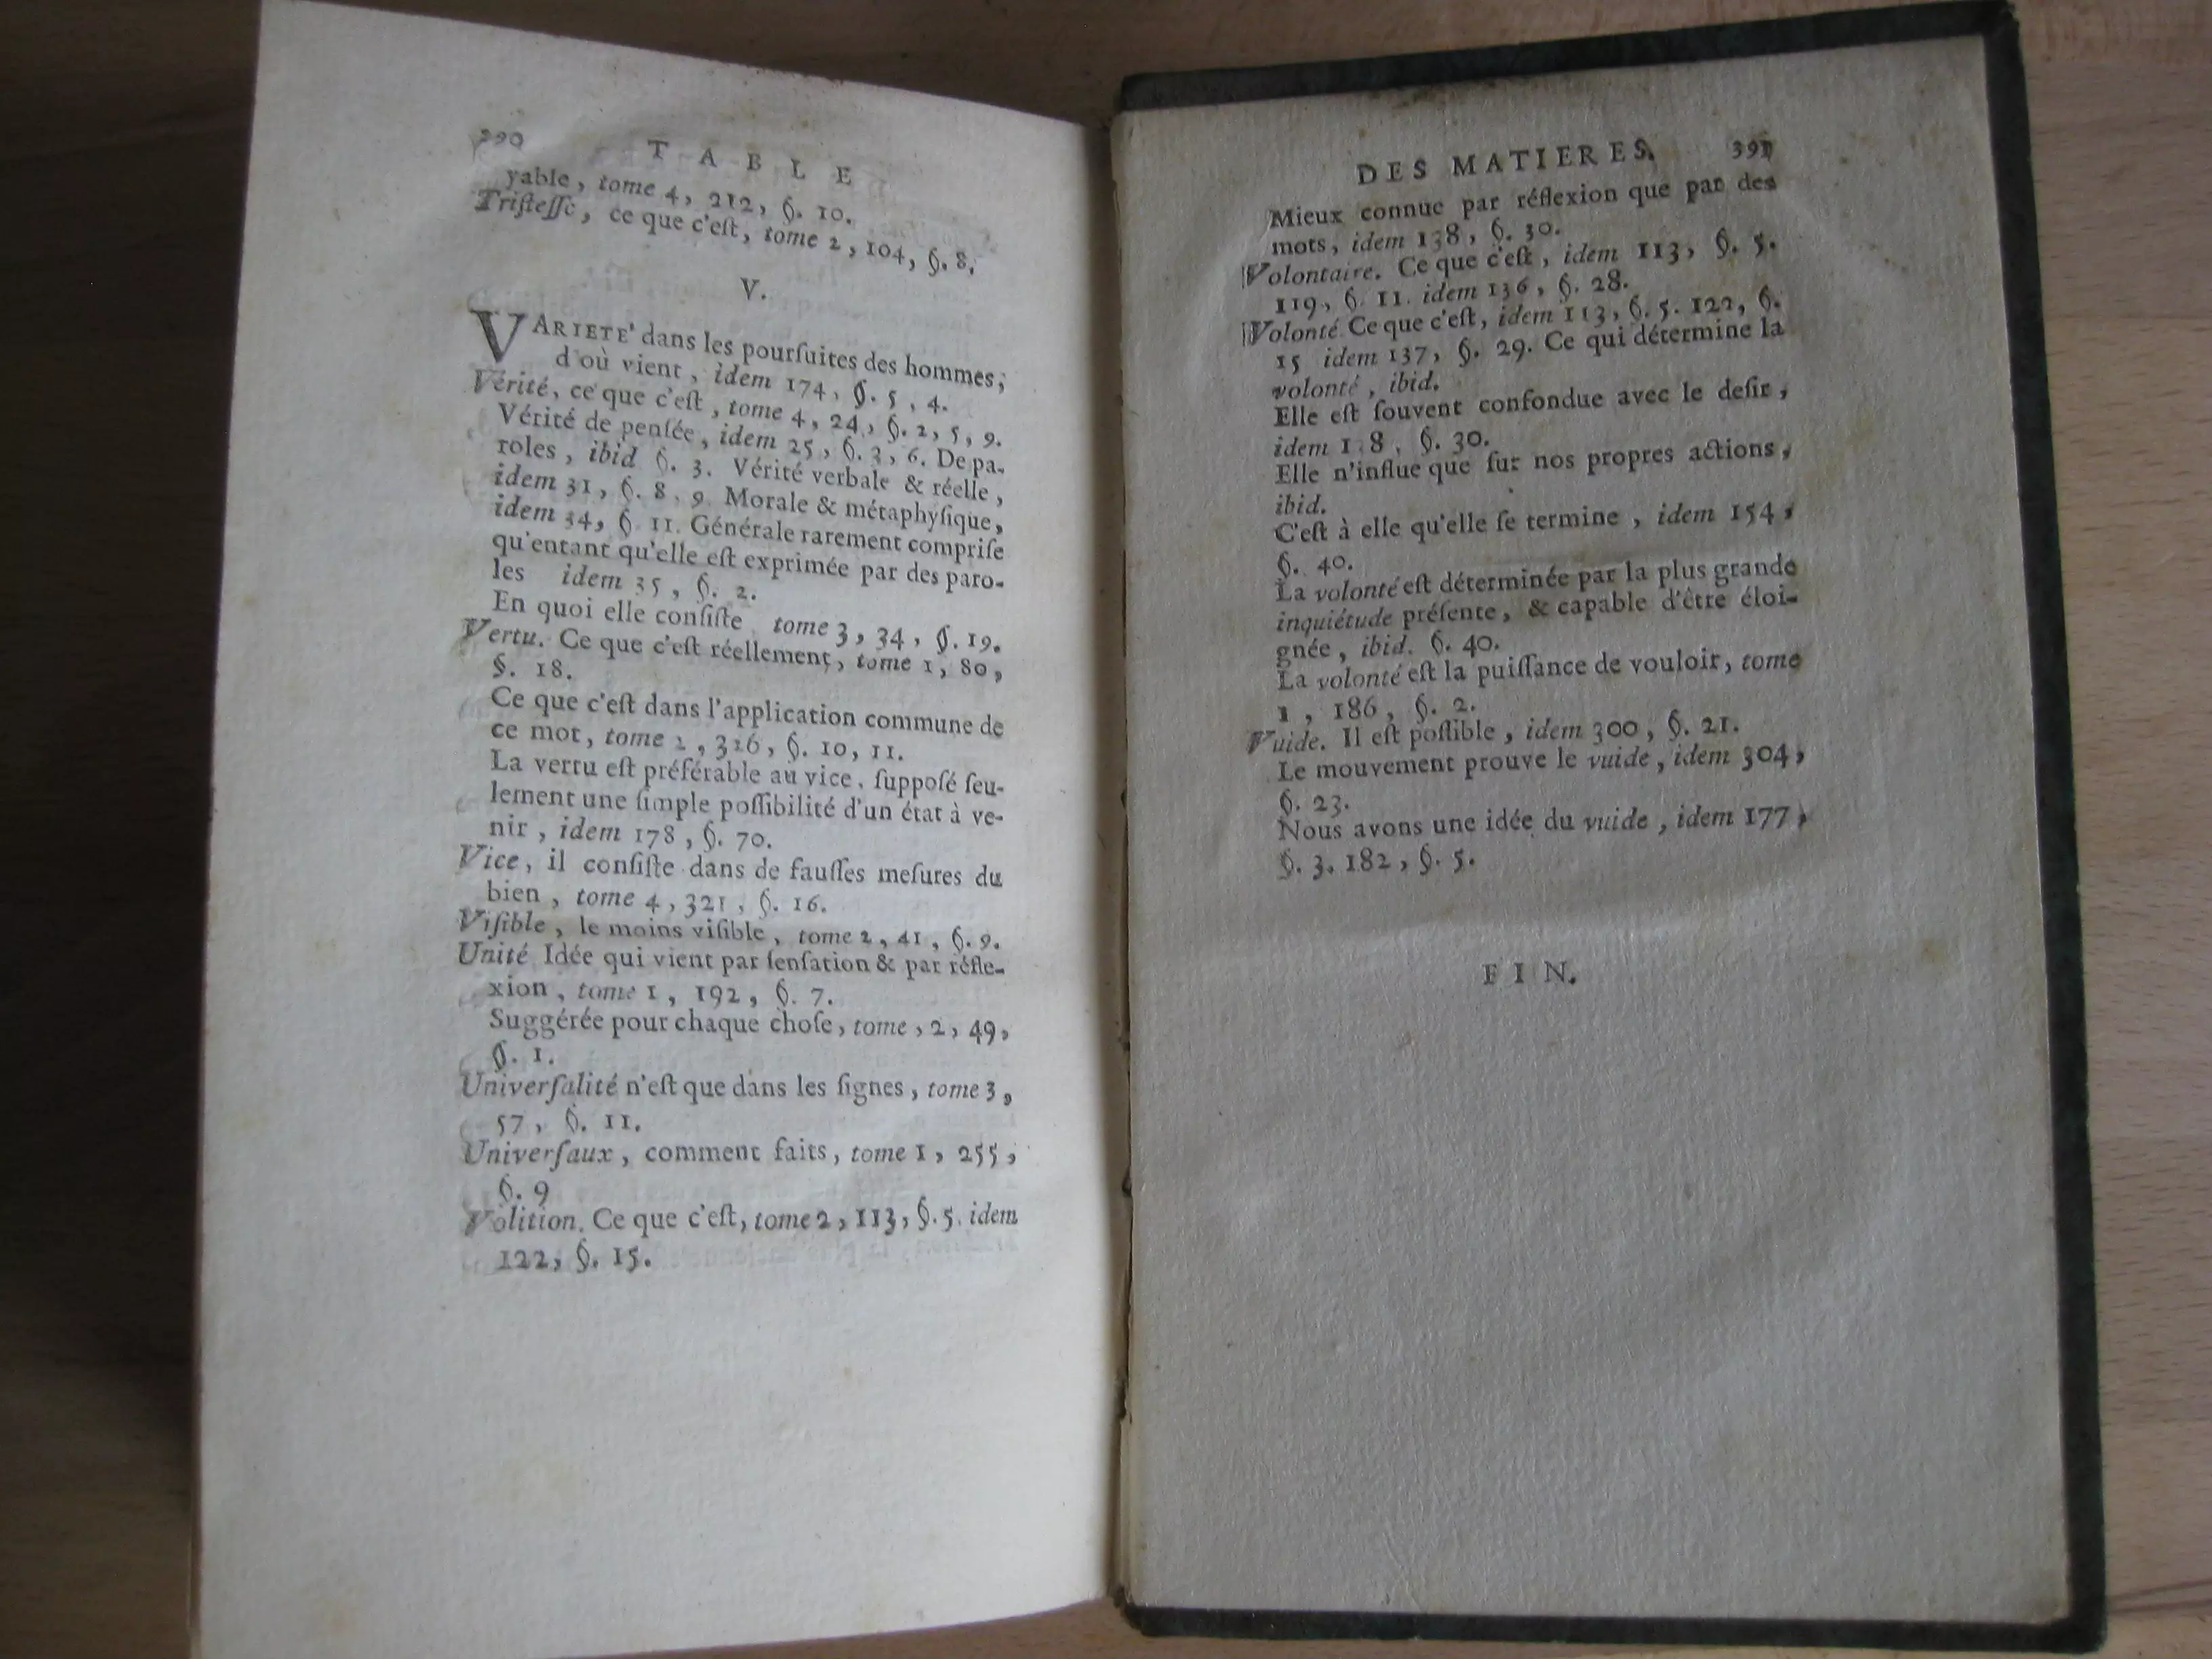 390 TABLE
yable, tome 4, 212, §. 10.
Triſteſſe, ce que c'eſt, tome 2, 104, §. 8.
V.
VARIETE' dans les pourſuites des hommes;
d'où vient, idem 174, §. 5, 4.
Vérité, ce que c'eſt, tome 4, 24, §. 2, 5, 9.
Vérité de penſée, idem 25, §. 3, 6. De pa-
roles, ibid §. 3. Vérité verbale & réelle,
idem 31, §. 8, 9. Morale & métaphyſique,
idem 34, § 11. Générale rarement compriſe
qu'entant qu'elle eſt exprimée par des paro-
les idem 35, §. 2.
En quoi elle conſiſte tome 3, 34, §. 19.
Vertu. Ce que c'eſt réellement, tome 1, 80,
§. 18.
Ce que c'eſt dans l'application commune de
ce mot, tome 2, 316, §. 10, 11.
La vertu eſt préférable au vice, ſuppoſé ſeu-
lement une ſimple poſſibilité d'un état à ve-
nir, idem 178, §. 70.
Vice, il conſiſte dans de fauſſes meſures du
bien, tome 4, 321, §. 16.
Viſible, le moins viſible, tome 2, 41, §. 9.
Unité Idée qui vient par ſenſation & par réfle-
xion, tome 1, 192, §. 7.
Suggérée pour chaque choſe, tome, 2, 49,
§. 1.
Univerſalité n'eſt que dans les ſignes, tome 3,
57, §. 11.
Univerſaux, comment faits, tome 1, 255,
§. 9
Volition. Ce que c'eſt, tome 2, 113, §. 5. idem
122, §. 15.
DES MATIERES. 391
Mieux connue par réflexion que par des
mots, idem 138, §. 30.
Volontaire. Ce que c'eſt, idem 113, §. 5.
119, §. 11. idem 136, §. 28.
Volonté Ce que c'eſt, idem 113, §. 5. 122, §.
15 idem 137, §. 29. Ce qui détermine la
volonté, ibid.
Elle eſt ſouvent confondue avec le deſir,
idem 1 8, §. 30.
Elle n'influe que ſur nos propres actions,
ibid.
C'eſt à elle qu'elle ſe termine, idem 154,
§. 40.
La volonté eſt déterminée par la plus grande
inquiétude préſente, & capable d'être éloi-
gnée, ibid. §. 40.
La volonté eſt la puiſſance de vouloir, tome
1, 186, §. 2.
Vuide. Il eſt poſſible, idem 300, §. 21.
Le mouvement prouve le vuide, idem 304,
§. 23.
Nous avons une idée du vuide, idem 177,
§. 3. 182, §. 5.
FIN.